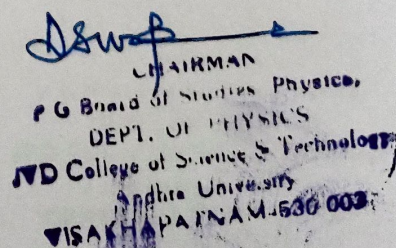 CHAIRMAN
P G Board of Studies Physics,
DEPT. OF PHYSICS
JVD College of Science & Technology
Andhra University
VISAKHAPATNAM-530 003